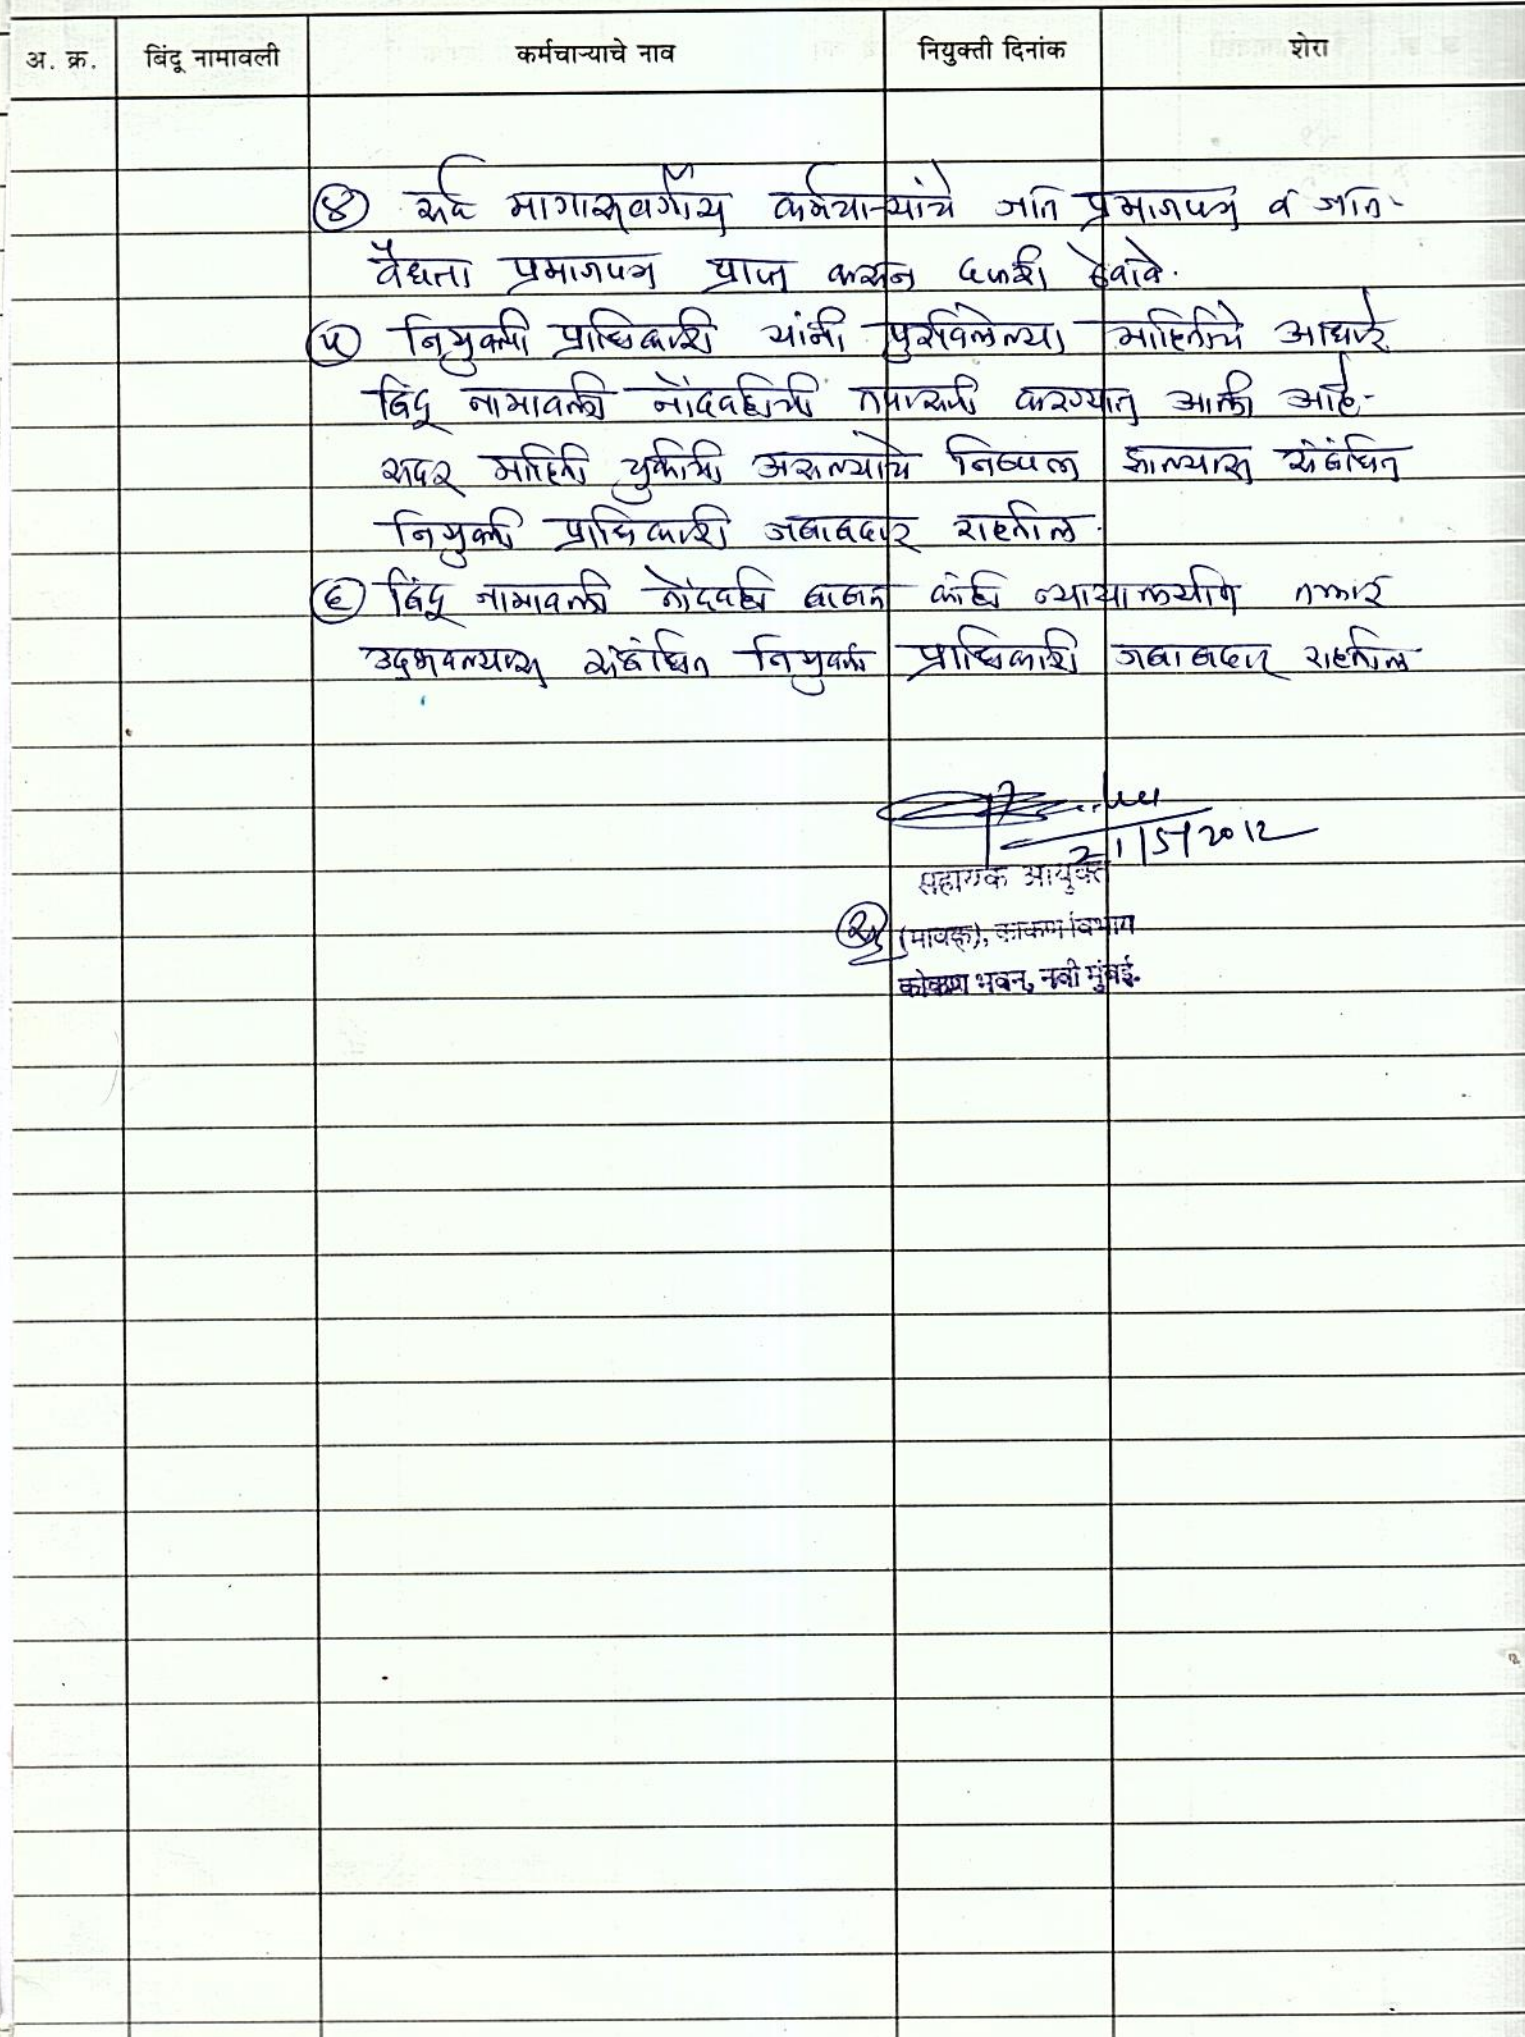 अ. क्र. बिंदू नामावली कर्मचाऱ्याचे नाव नियुक्ती दिनांक शेरा
④ सर्व मागासवर्गीय कर्मचाऱ्यांचे जाति प्रमाणपत्र व जाति-
वैधता प्रमाणपत्र प्राप्त करून दप्तरी ठेवावे.
⑤ नियुक्ती प्राधिकारी यांनी पुरविलेल्या माहितीचे आधारे
बिंदू नामावली नोंदवहीची तपासणी करण्यात आली आहे-
सदर माहिती चुकीची असल्याचे निष्पन्न झाल्यास संबंधित
नियुक्ती प्राधिकारी जबाबदार राहतील.
⑥ बिंदू नामावली नोंदवही बाबत कांही न्यायालयीन तक्रार
उद्भवल्यास संबंधित नियुक्ती प्राधिकारी जबाबदार राहतील
21/5/2012
सहायक आयुक्त
(मावक), कोकण विभाग
कोकण भवन, नवी मुंबई.